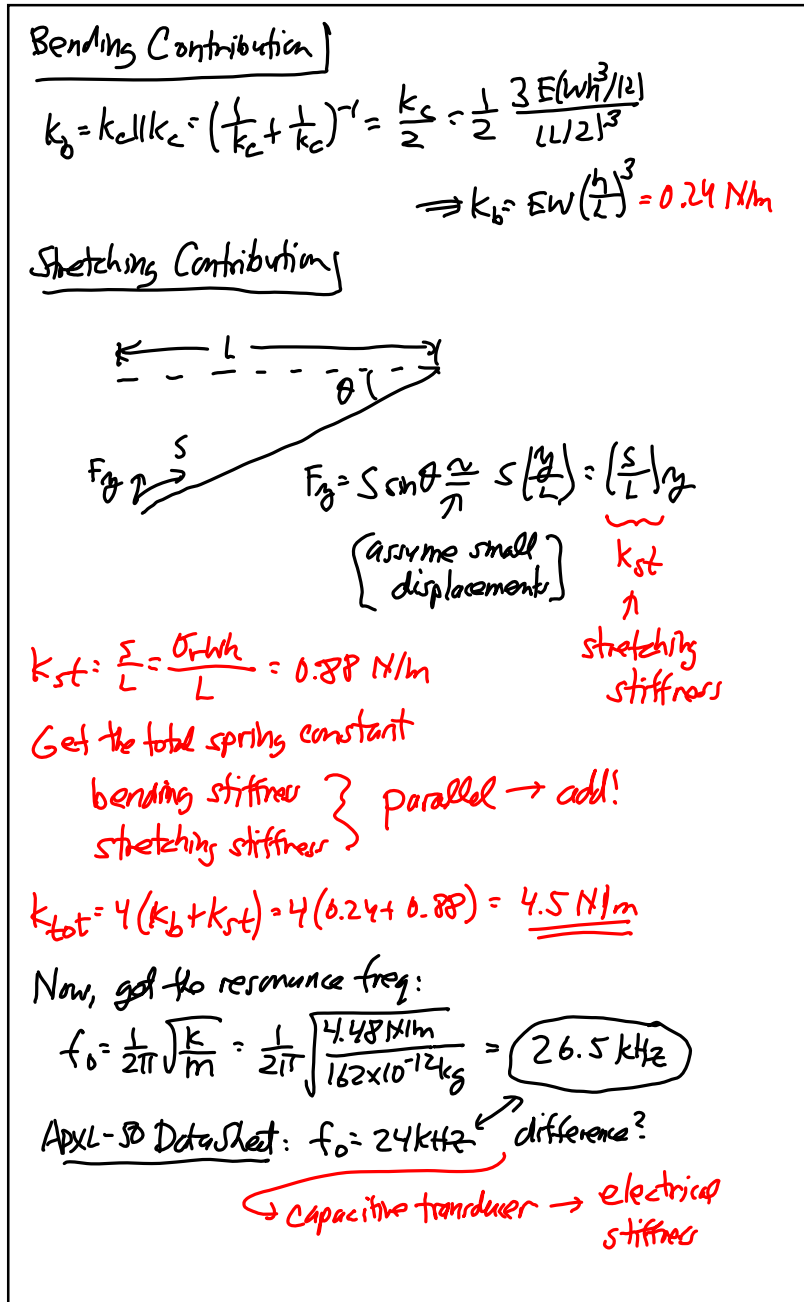 Bending Contribution
k_b = k_c || k_c = (1/k_c + 1/k_c)^-1 = k_c/2 = 1/2 3E(Wh^3/12)/(L/2)^3
⟹ k_b = EW(h/L)^3 = 0.24 N/m
Stretching Contribution
L
θ
S
F_y
F_y = S sinθ ≅ S(y/L) = (S/L)y
[assume small displacements]
k_st
↑
stretching
stiffness
k_st = S/L = σ_r Wh/L = 0.88 N/m
Get the total spring constant
bending stiffness
stretching stiffness } parallel → add!
k_tot = 4(k_b + k_st) = 4(0.24 + 0.88) = 4.5 N/m
Now, get the resonance freq:
f_0 = 1/2π √(k/m) = 1/2π √(4.48 N/m / 162x10^-12 kg) = 26.5 kHz
ADXL-50 Data Sheet: f_0 = 24 kHz difference?
capacitive transducer → electrical
stiffness